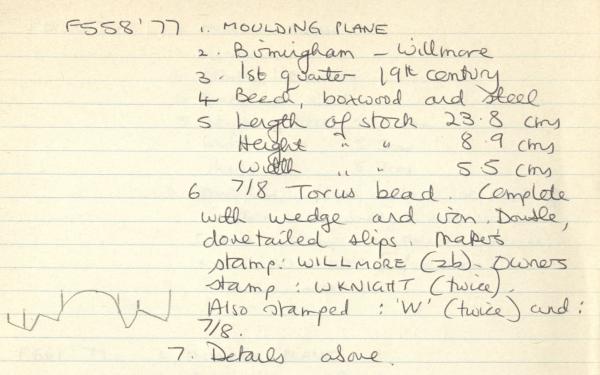 F558'77 1. MOULDING PLANE
2. Birmingham - Willmore
3. 1st quarter 19th century
4 Beech, boxwood and steel
5 Length of stock 23.8 cms
Height " " 8.9 cms
Width " " 5.5 cms
6 7/8 Torus bead. Complete
with wedge and iron. Double,
dovetailed slips. Makers
stamp: WILLMORE (2b). Owners
stamp: WKNIGHT (twice).
Also stamped : 'W' (twice) and:
7/8.
7. Details above.